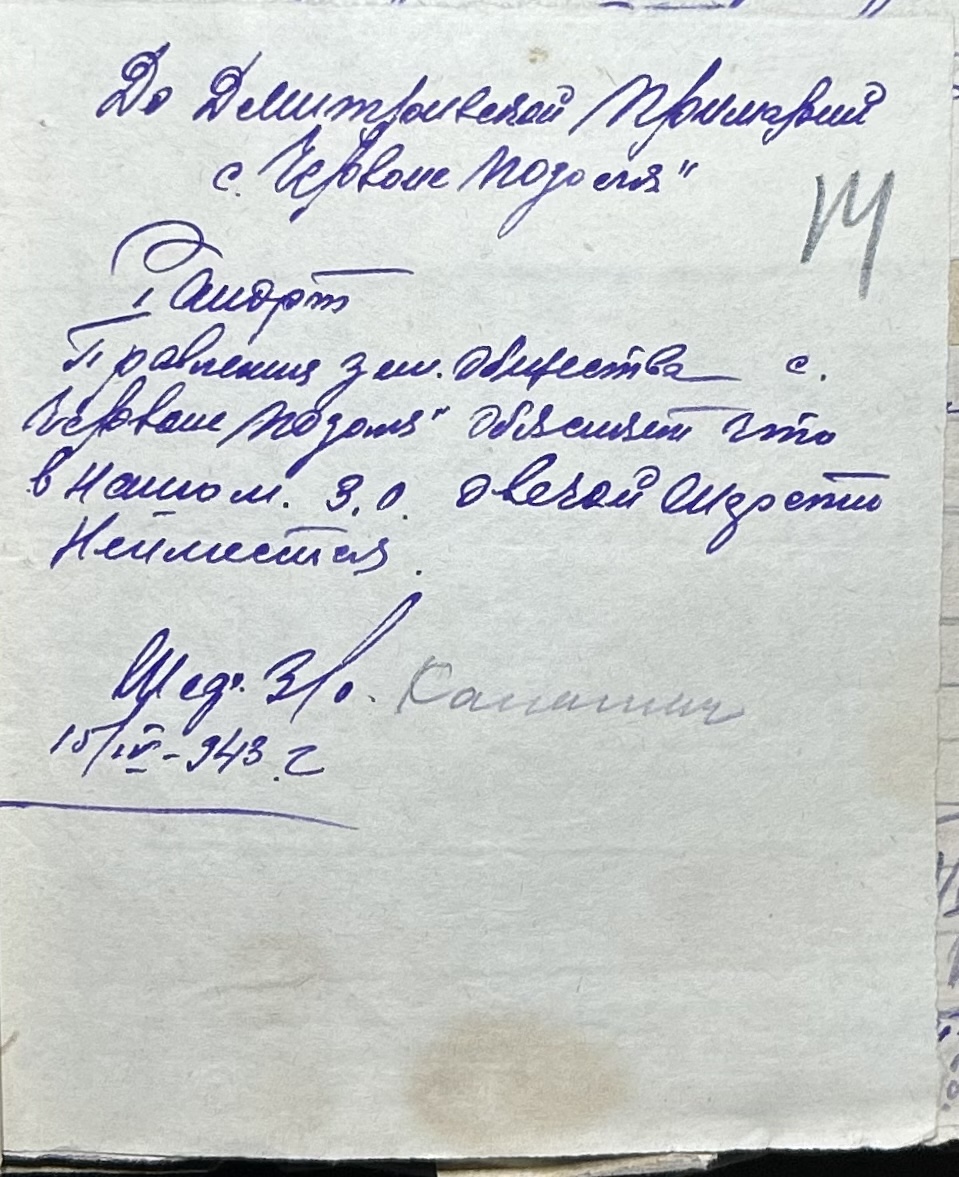 До Дмитровской Примарии
с. Червоне Подоля"
14
Рапорт
Правления зем. Общества с.
Червоне Подоля" Объясняет что
в нашом. З.О. овечой Шерсти
Неймеется.
З/о.
15/IV-943 г